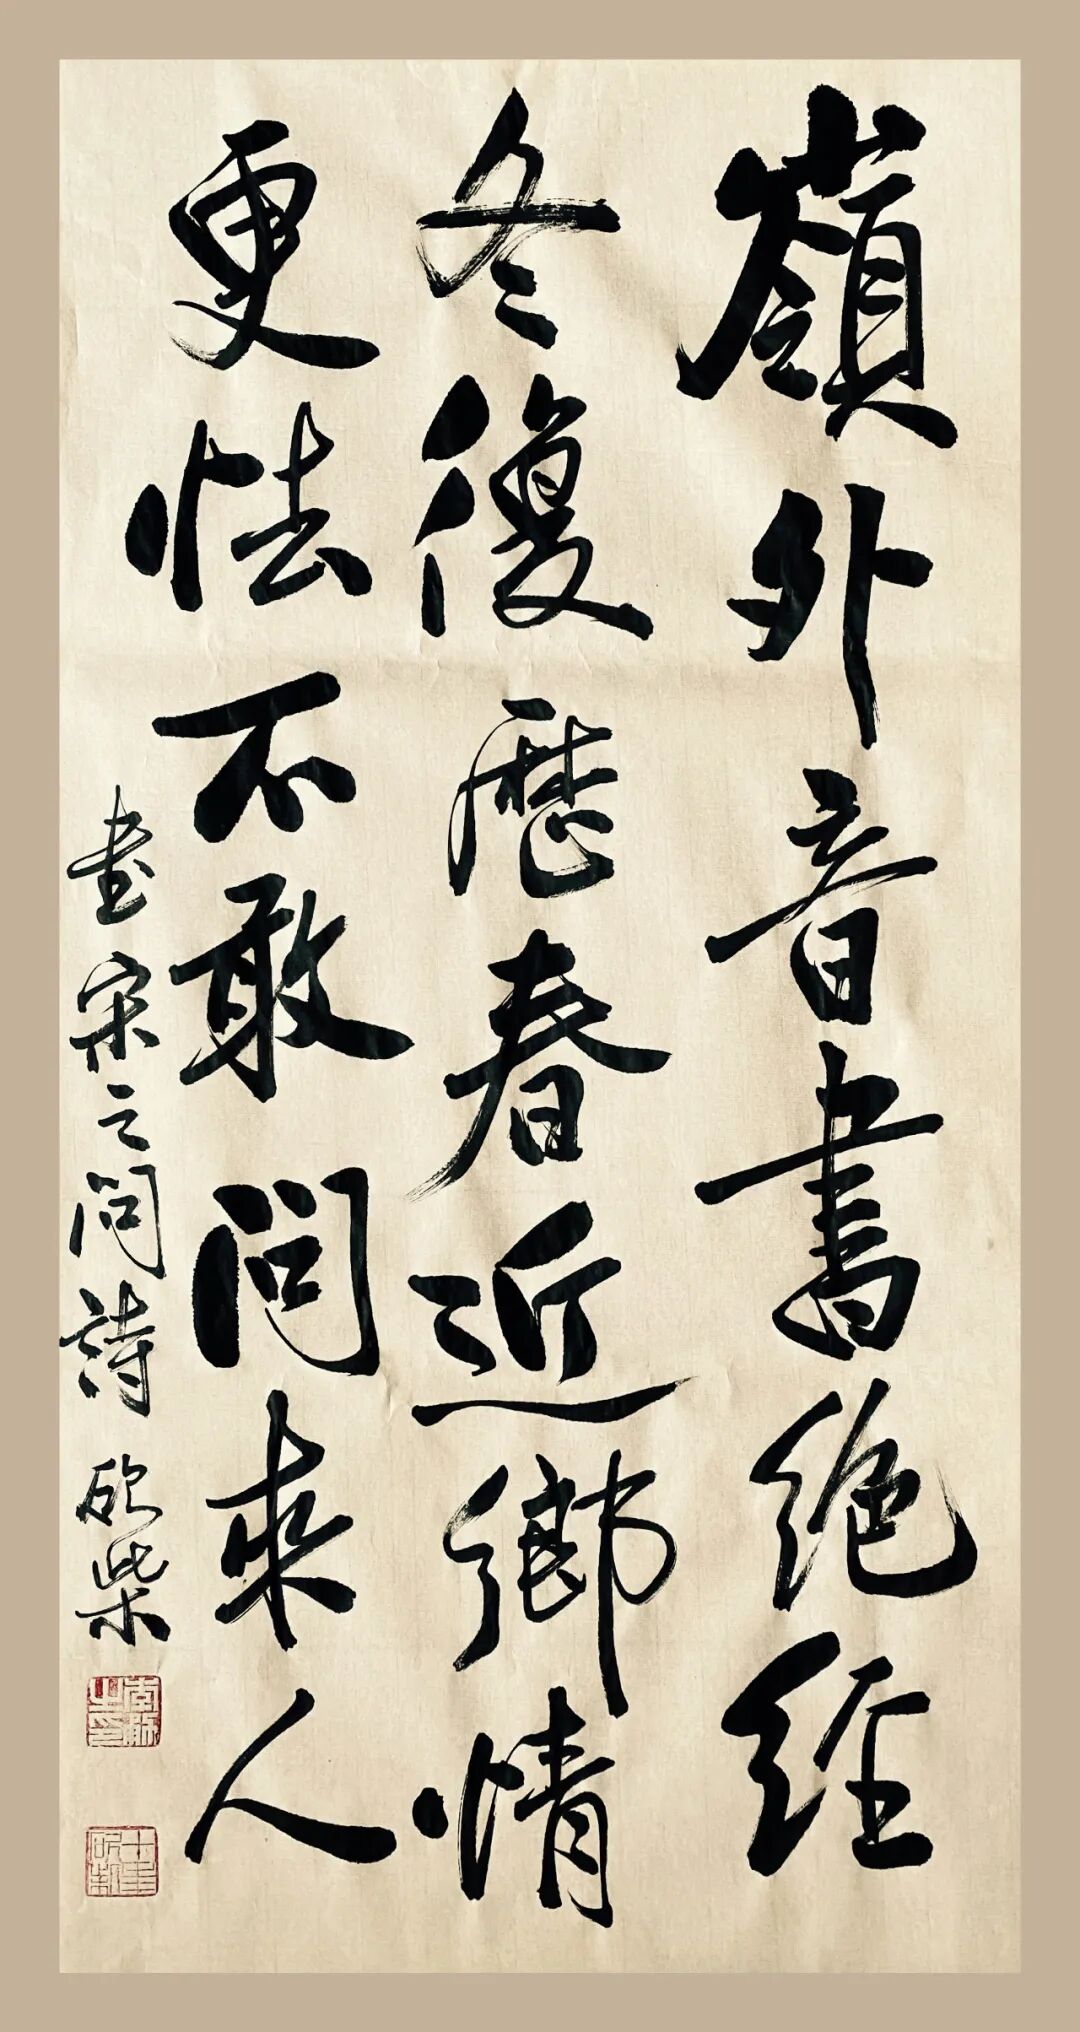 嶺外音書絶經
冬復歷春近鄉情
更怯不敢問來人
書宋之問詩 砍柴